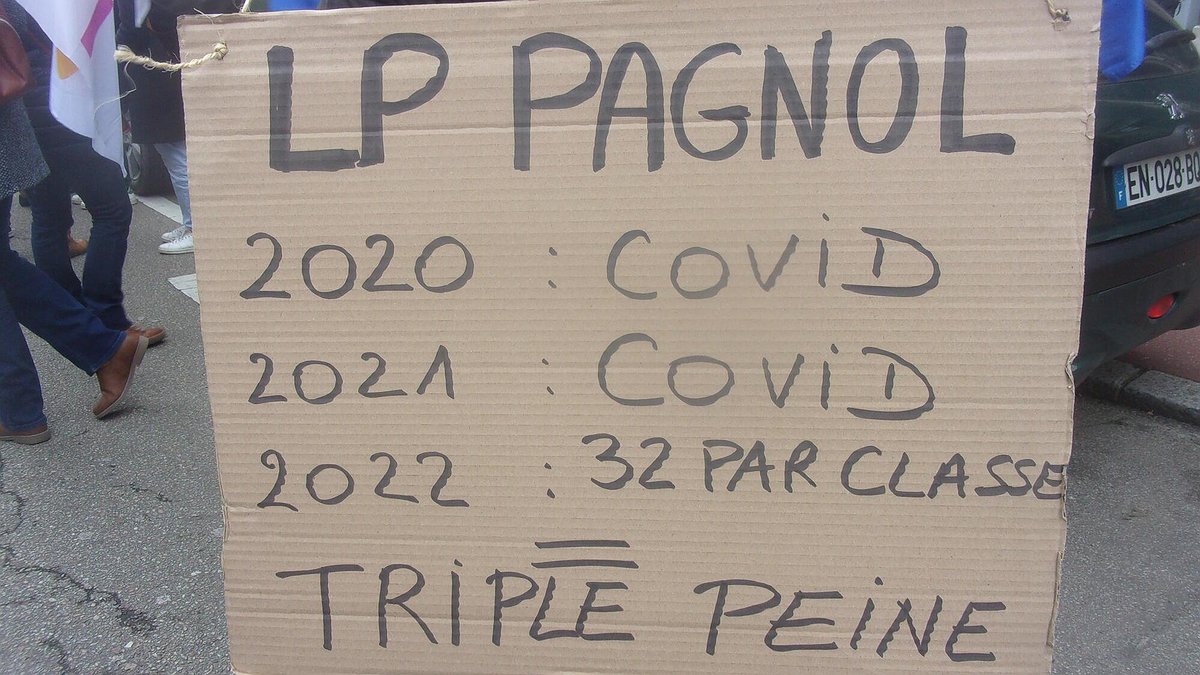 LP PAGNOL
2020 : COViD
2021 : COViD
2022 : 32 PAR CLASSE
=
TRiPLE PEiNE
F EN-028-BQ